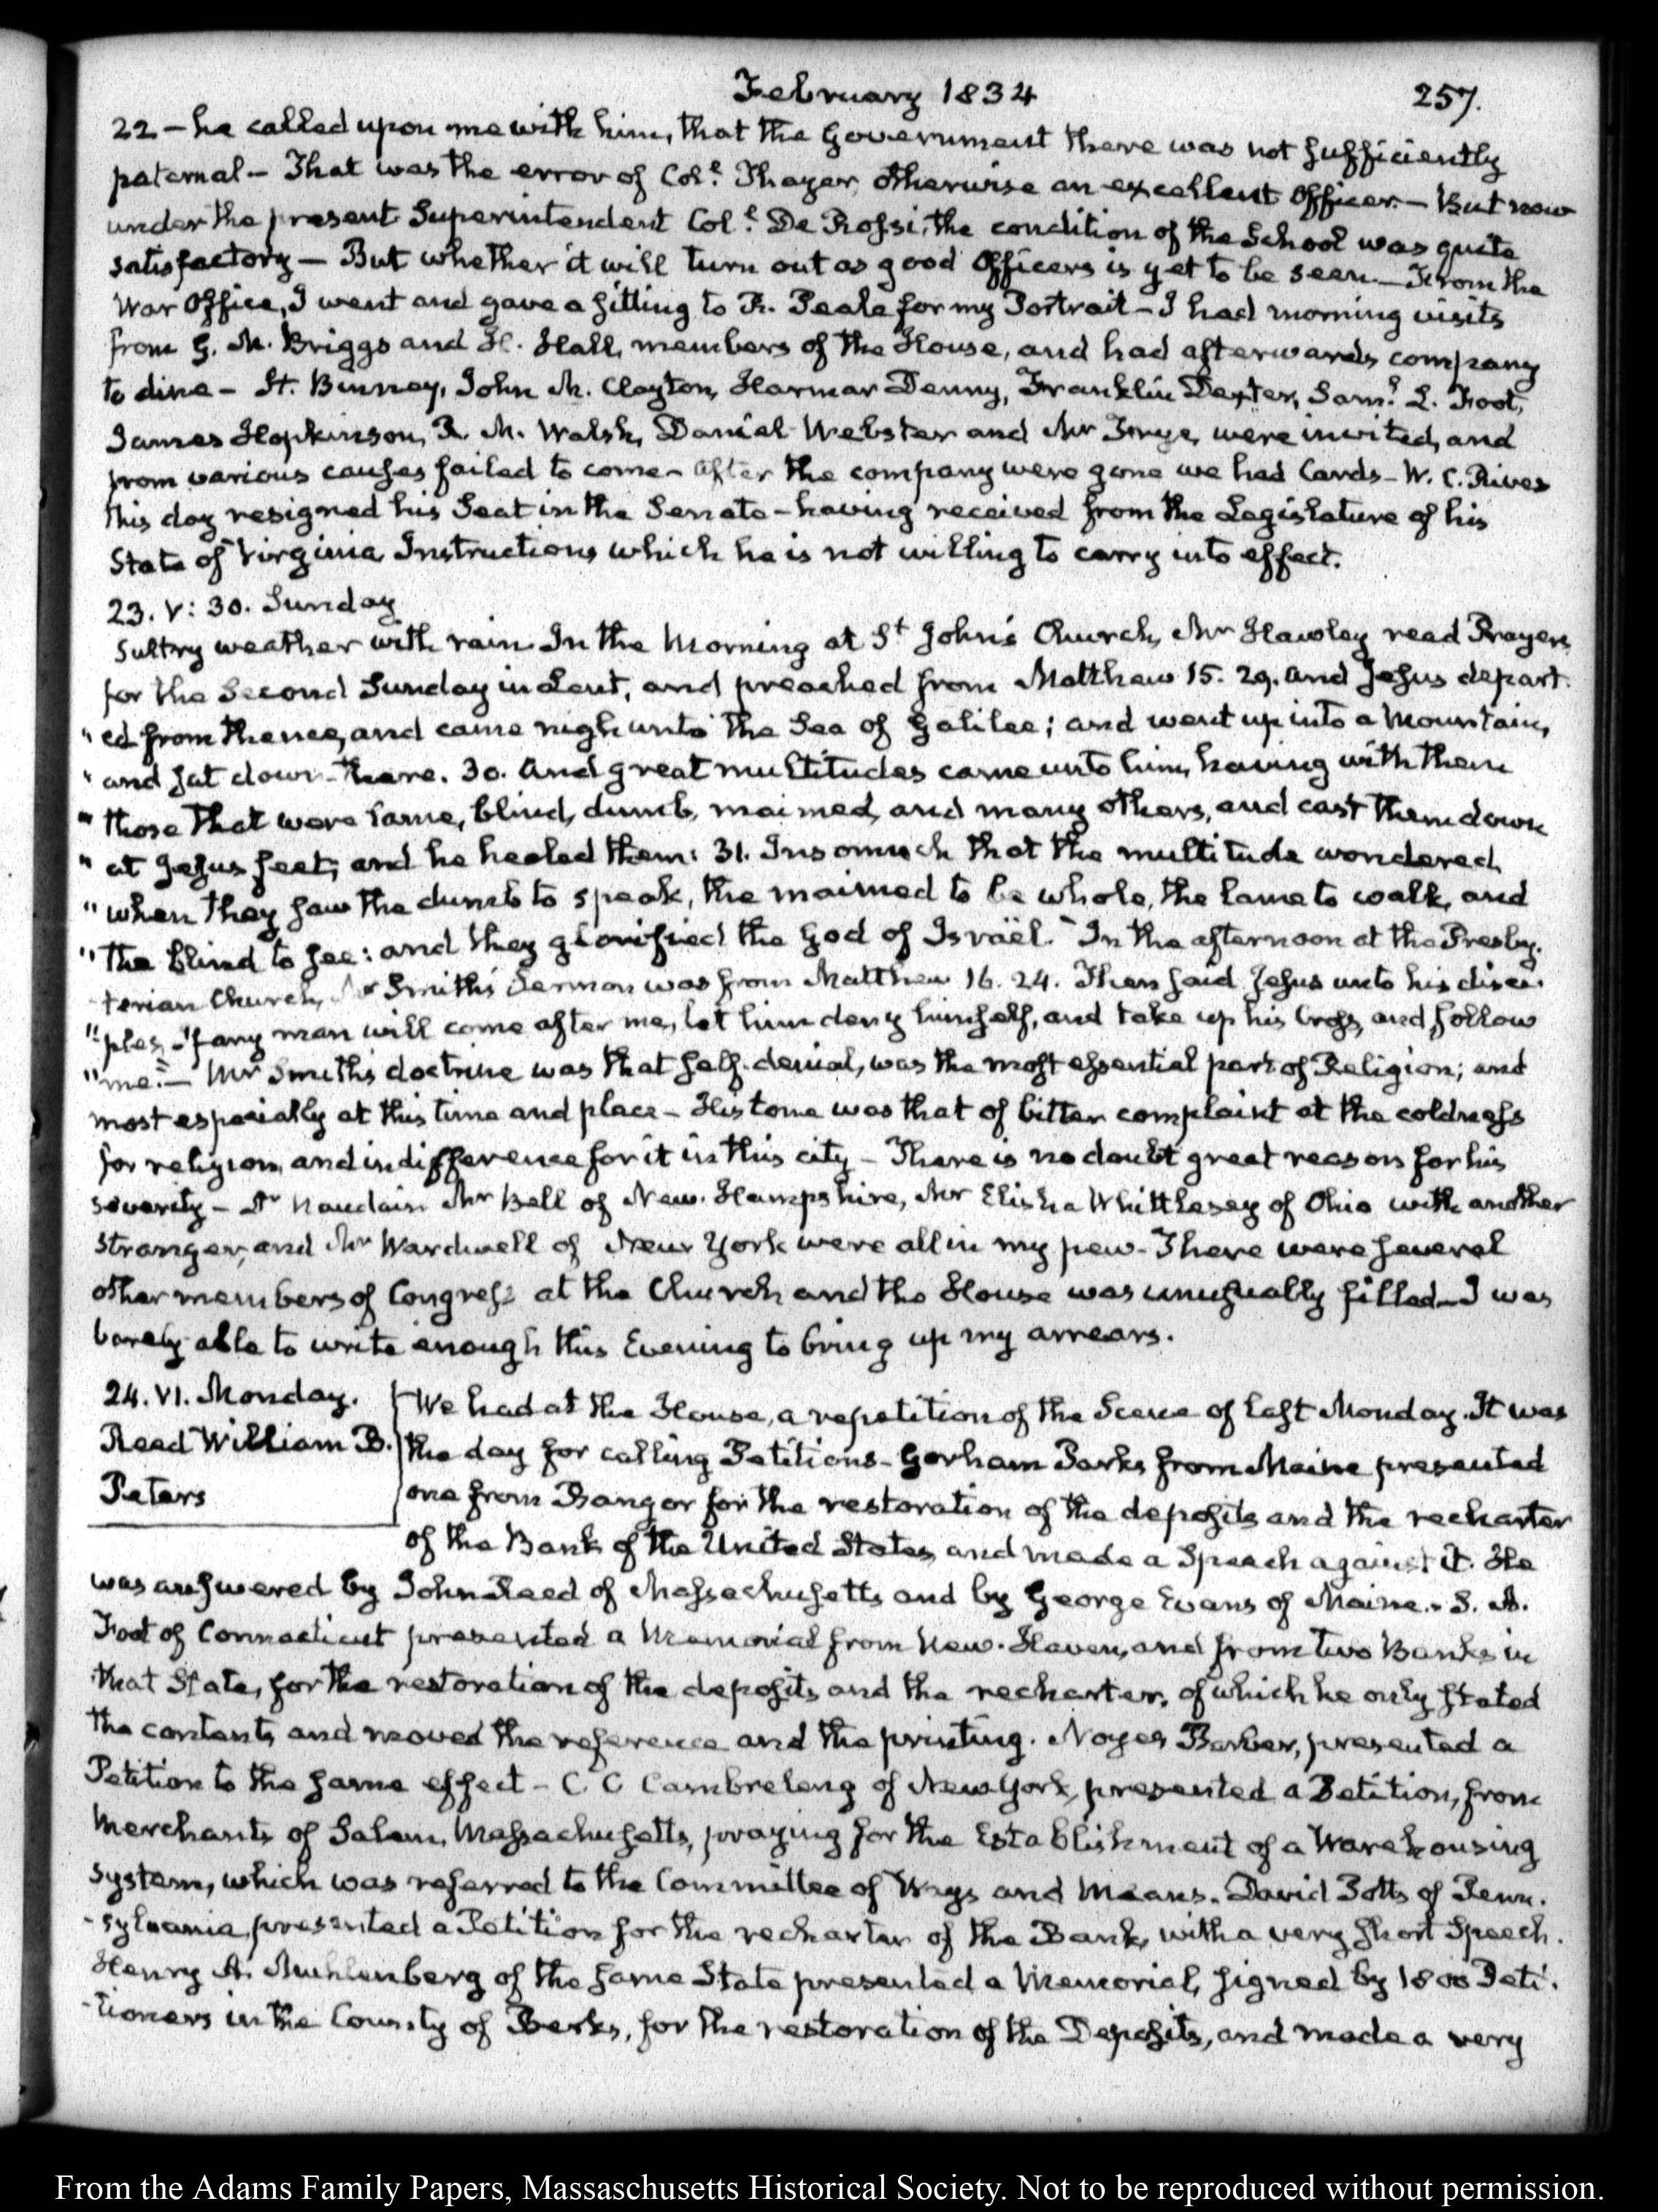 February 1834
257.
22 — he called upon me with him, that the Government there was not sufficiently
paternal — That was the error of Coll. Thayer, otherwise an excellent Officer. — But now
under the present Superintendent Coll. De Rossi, the condition of the School was quite
satisfactory — But whether it will turn out as good Officers is yet to be seen — From the
War Office, I went and gave a sitting to R. Peale for my Portrait — I had morning visits
from G. N. Briggs and H. Hall, members of the House, and had afterwards company
to dine — H. Binney, John M. Clayton, Harmar Denny, Franklin Dexter, Saml. L. Foot,
James Hopkinson, R. M. Walsh, Daniel Webster and Mr Frye, were invited, and
from various causes failed to come — After the company were gone we had Cards — W. C. Rives
this day resigned his Seat in the Senate — having received from the Legislature of his
State of Virginia Instructions which he is not willing to carry into effect.
23. V: 30. Sunday
Sultry weather with rain. In the Morning at St John's Church, Mr Hawley read Prayers
for the Second Sunday in Lent, and preached from Matthew 15. 29. And Jesus depart-
"ed from thence, and came nigh unto the Sea of Galilee; and went up into a Mountain,
"and sat down there. 30. And great multitudes came unto him, having with them
"those that were lame, blind, dumb, maimed, and many others, and cast them down
"at Jesus feet; and he healed them: 31. Insomuch that the multitude wondered,
"when they saw the dumb to speak, the maimed to be whole, the lame to walk, and
"the blind to see: and they glorified the God of Israël." In the afternoon at the Presby-
-terian Church, Mr Smith's Sermon was from Matthew 16. 24. Then said Jesus unto his disci-
"ples, If any man will come after me, let him deny himself, and take up his Cross, and follow
"me." — Mr Smith's doctrine was that self-denial, was the most essential part of Religion; and
most especially at this time and place — His tone was that of bitter complaint at the coldness
for religion, and indifference for it in this city — There is no doubt great reason for his
severity — Dr Naudain Mr Bell of New-Hampshire, Mr Elisha Whittlesey of Ohio with another
stranger, and Mr Wardwell of New York were all in my pew — There were several
other members of Congress at the Church and the House was unusually filled — I was
barely able to write enough this Evening to bring up my arrears.
24. VI. Monday.
Read William B.
Peters
We had at the House, a repetition of the Scene of last Monday. It was
the day for calling Petitions — Gorham Parks from Maine presented
one from Bangor for the restoration of the deposits and the recharter
of the Bank of the United States, and made a Speech against it. He
was answered by John Reed of Massachusetts and by George Evans of Maine. — S. A.
Foot of Connecticut presented a Memorial from New-Haven, and from two Banks in
that State, for the restoration of the deposits and the recharter, of which he only stated
the contents, and moved the reference and the printing. Noyes Barber, presented a
Petition to the same effect — C C Cambreleng of New York, presented a Petition, from
Merchants of Salem, Massachusetts, praying for the Establishment of a Warehousing
system, which was referred to the Committee of Ways and Means. David Potts of Penn-
-sylvania, presented a Petition for the recharter of the Bank, with a very short Speech.
Henry A. Muhlenberg of the same State presented a Memorial, signed by 1800 Peti-
-tioners in the County of Berks, for the restoration of the Deposits, and made a very
From the Adams Family Papers, Massachusetts Historical Society. Not to be reproduced without permission.